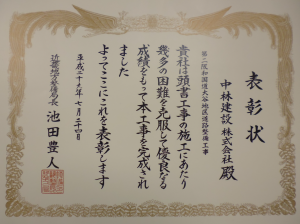 表彰状
中林建設株式会社殿
第二阪和国道大谷地区道路整備工事
貴社は頭書工事の施工にあたり
幾多の困難を克服して優良なる
成績をもって本工事を完成され
ました
よってここにこれを表彰します
平成二十九年七月二十四日
近畿地方整備局長 池田豊人